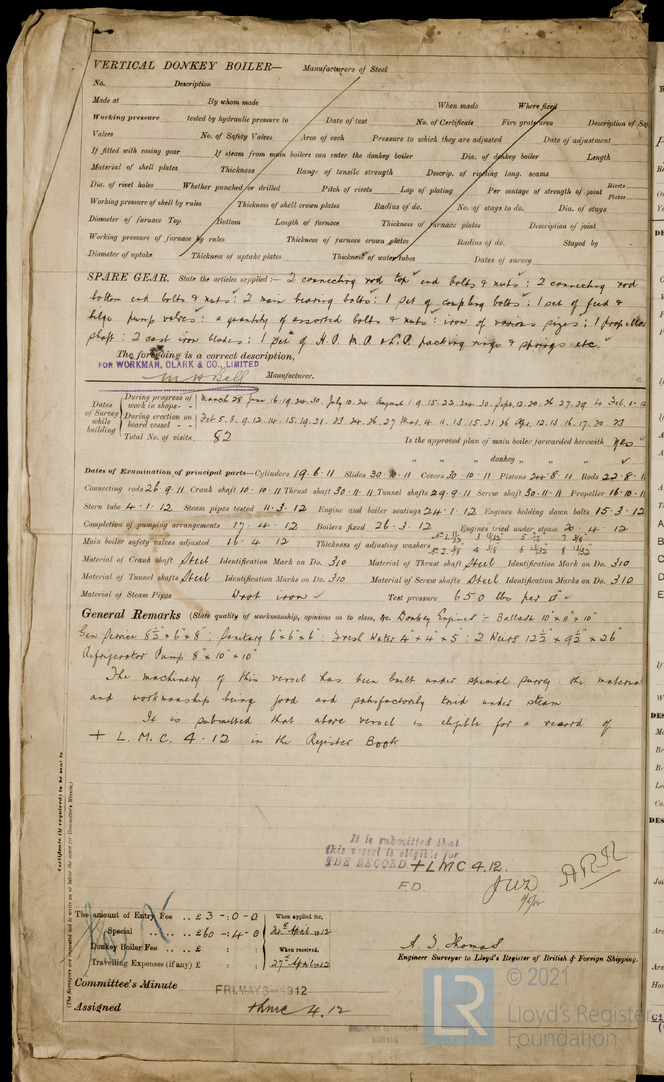 VERTICAL DONKEY BOILER— Manufacturers of Steel
No. Description
Made at By whom made When made Where fixed
Working pressure tested by hydraulic pressure to Date of test No. of Certificate Fire grate area Description of Saf
Valves No. of Safety Valves Area of each Pressure to which they are adjusted Date of adjustment
If fitted with easing gear If steam from main boilers can enter the donkey boiler Dia. of donkey boiler Length
Material of shell plates Thickness Range of tensile strength Descrip. of riveting long. seams
Dia. of rivet holes Whether punched or drilled Pitch of rivets Lap of plating Per centage of strength of joint Rivets Plates
Working pressure of shell by rules Thickness of shell crown plates Radius of do. No. of stays to do. Dia. of stays
Diameter of furnace Top Bottom Length of furnace Thickness of furnace plates Description of joint
Working pressure of furnace by rules Thickness of furnace crown plates Radius of do. Stayed by
Diameter of uptake Thickness of uptake plates Thickness of water tubes Dates of survey
SPARE GEAR. State the articles supplied :— 2 connecting rod top end bolts & nuts : 2 connecting rod
bottom end bolts & nuts : 2 main bearing bolts : 1 set of coupling bolts : 1 set of feed &
bilge pump valves : a quantity of assorted bolts & nuts : iron of various sizes : 1 propeller
shaft : 2 cast iron blades : 1 set of H.P. M.P. & L.P. packing rings & springs etc.
The foregoing is a correct description,
FOR WORKMAN, CLARK & CO., LIMITED
Manufacturer.
Dates of Survey while building
During progress of work in shops - - March 28 June 16.19.24.30. July 10.24 August 1.9.15.22.24.30. Sept. 12.20.26.27.29 to Feb. 1.12
During erection on board vessel - - Feb 5.8.9.12.14.15.19.21.23.24.26.27 Mar. 4.11.13.15.21.26 Apr. 12.13.16.17.20.23
Total No. of visits 82 Is the approved plan of main boiler forwarded herewith Yes
" " " donkey "
Dates of Examination of principal parts—Cylinders 19.6.11 Slides 30.10.11 Covers 30.10.11 Pistons 24.8.11 Rods 22.8.11
Connecting rods 26.9.11 Crank shaft 10.10.11 Thrust shaft 30.11.11 Tunnel shafts 29.9.11 Screw shaft 30.11.11 Propeller 16.10.11
Stern tube 4.1.12 Steam pipes tested 11.3.12 Engine and boiler seatings 24.1.12 Engines holding down bolts 15.3.12
Completion of pumping arrangements 17.4.12 Boilers fixed 26.3.12 Engines tried under steam 20.4.12
Main boiler safety valves adjusted 16.4.12 Thickness of adjusting washers
Material of Crank shaft Steel Identification Mark on Do. 310 Material of Thrust shaft Steel Identification Mark on Do. 310
Material of Tunnel shafts Steel Identification Marks on Do. 310 Material of Screw shafts Steel Identification Marks on Do. 310
Material of Steam Pipes Wrot iron Test pressure 650 lbs per □"
General Remarks (State quality of workmanship, opinions as to class, &c. Donkey Engines :- Ballast 10" x 11" x 10"
Gen. Service 8½ x 6 x 8" : Sanitary 6" x 6" x 6" : Fresh Water 4" x 4" x 5 : 2 Weirs 12½" x 9½" x 26"
Refrigerator Pump 8" x 10" x 10"
The machinery of this vessel has been built under special survey the material
and workmanship being good and satisfactorily tried under steam
It is submitted that above vessel is eligible for a record of
+ L.M.C. 4.12 in the Register Book
Certificate (if required) to be sent to
(The Surveyors are requested not to write on or below the space for Committee's Minute.)
It is submitted that
this vessel is eligible for
THE RECORD + LMC 4.12.
F.D.
The amount of Entry Fee .. £ 3 - : 0 - 0 When applied for,
Special .. .. £ 60 - : 4 - 0
Donkey Boiler Fee .. £ : : When received,
Travelling Expenses (if any) £ : :
A. J. Thomas
Engineer Surveyor to Lloyd's Register of British & Foreign Shipping.
Committee's Minute FRI. MAY 3 - 1912
Assigned + LMC 4.12
LR
© 2021
Lloyd's Register
Foundation